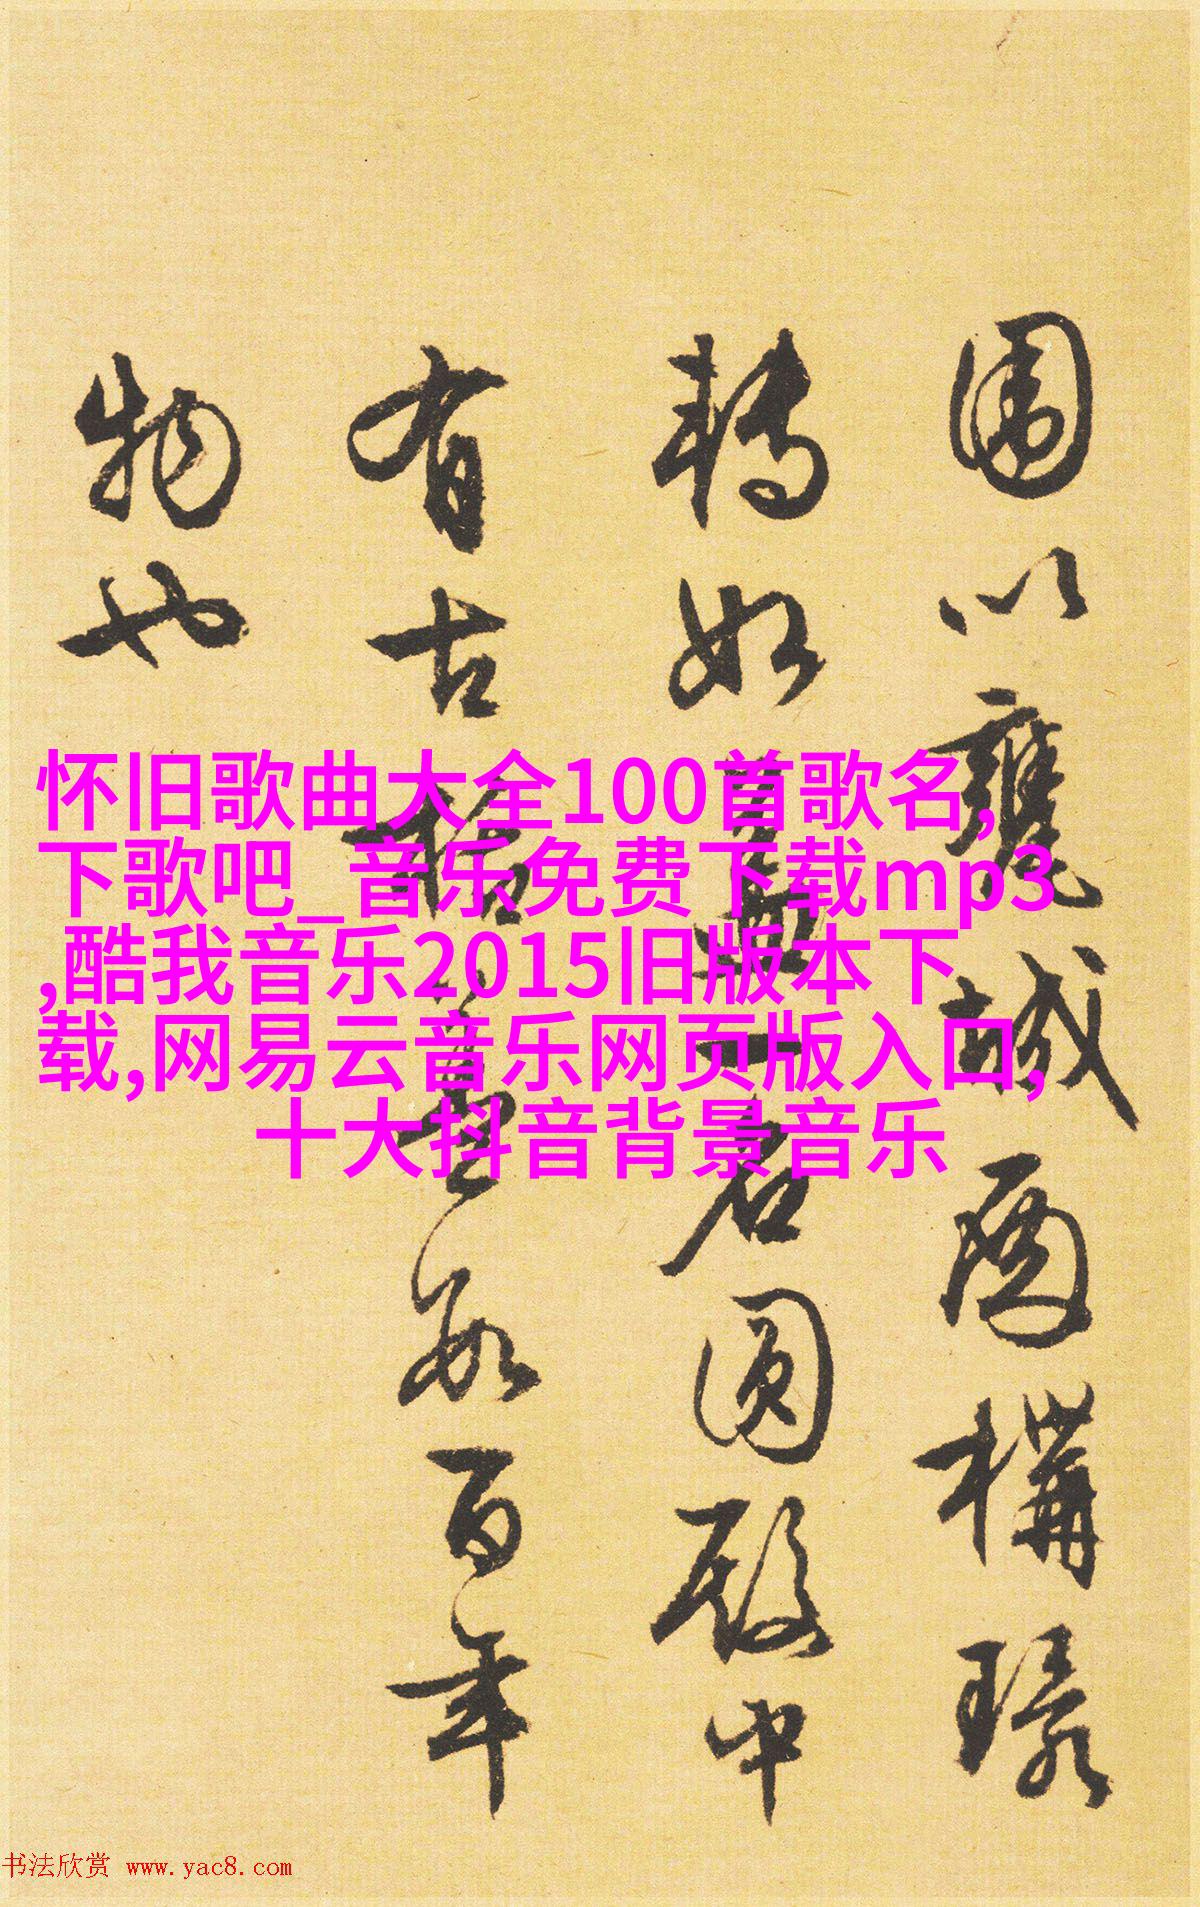 圍以甕城殿構環
轉如蓋一名圓殿中
有古栝蓋數百年
物也
怀旧歌曲大全100首歌名,
下歌吧_音乐免费下载mp3
,酷我音乐2015旧版本下
载,网易云音乐网页版入口,
十大抖音背景音乐
书法欣赏 www.yac8.com